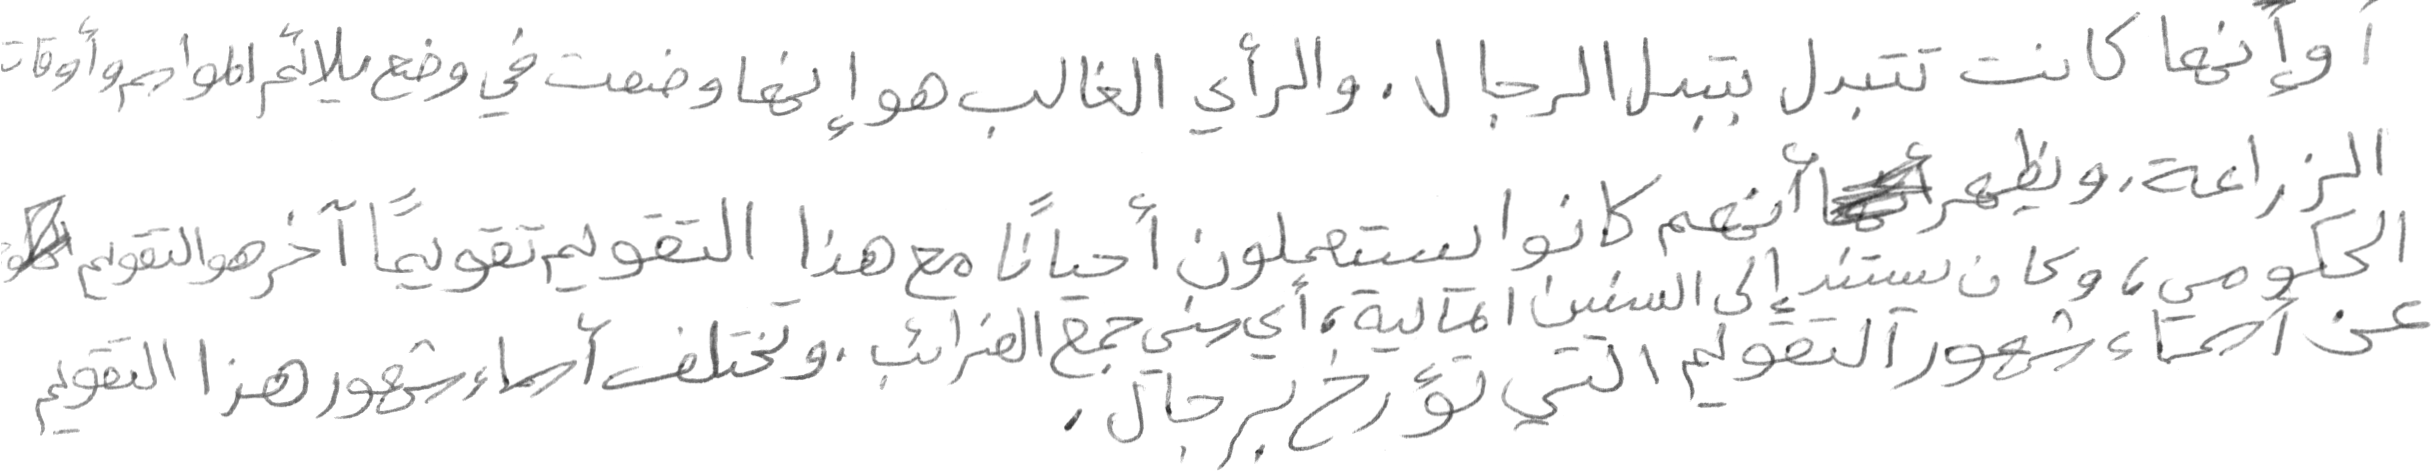 أو إنها كانت تتبدل بتبدل الرجال. والرأي الغالب هو إنها وضعت في وضع يلائم المواسم وأوقات
الزراعة. ويظهر أنهم كانوا يستعملون أحيانًا مع هذا التقويم تقويمًا آخر هو التقويم
الحكومي، وكان يستند إلى السنين المالية، أي سني جمع الضرائب. وتختلف أسماء شهور هذا التقويم
عن أسماء شهور التقويم التي تؤرخ برجال.